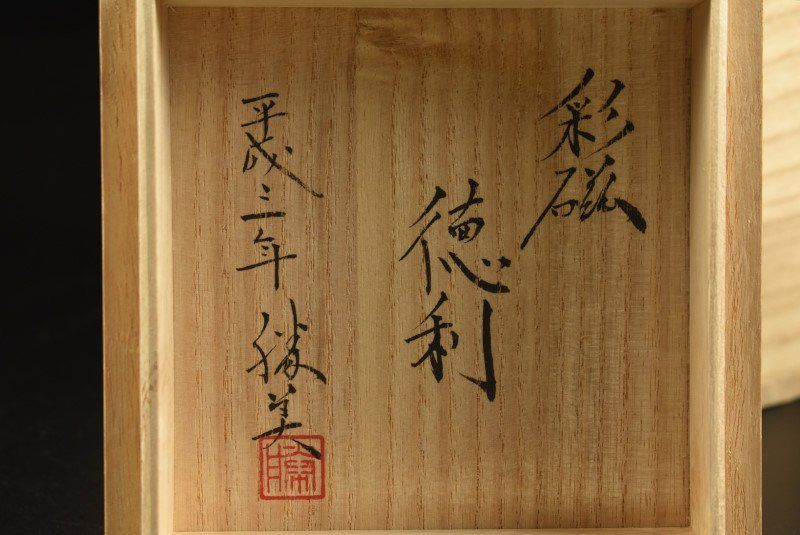 彩磁
徳利
平成三年 勝美